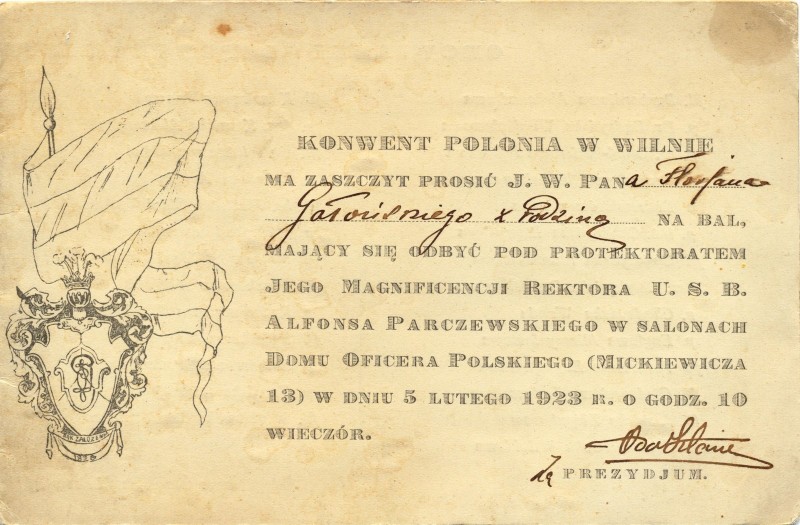 KONWENT POLONIA W WILNIE
MA ZASZCZYT PROSIĆ J. W. PANa Florjana
z Rodziną NA BAL,
MAJĄCY SIĘ ODBYĆ POD PROTEKTORATEM
JEGO MAGNIFICENCJI REKTORA U. S. B.
ALFONSA PARCZEWSKIEGO W SALONACH
DOMU OFICERA POLSKIEGO (MICKIEWICZA
13) W DNIU 5 LUTEGO 1923 R. O GODZ. 10
WIECZÓR.
Za PREZYDJUM.